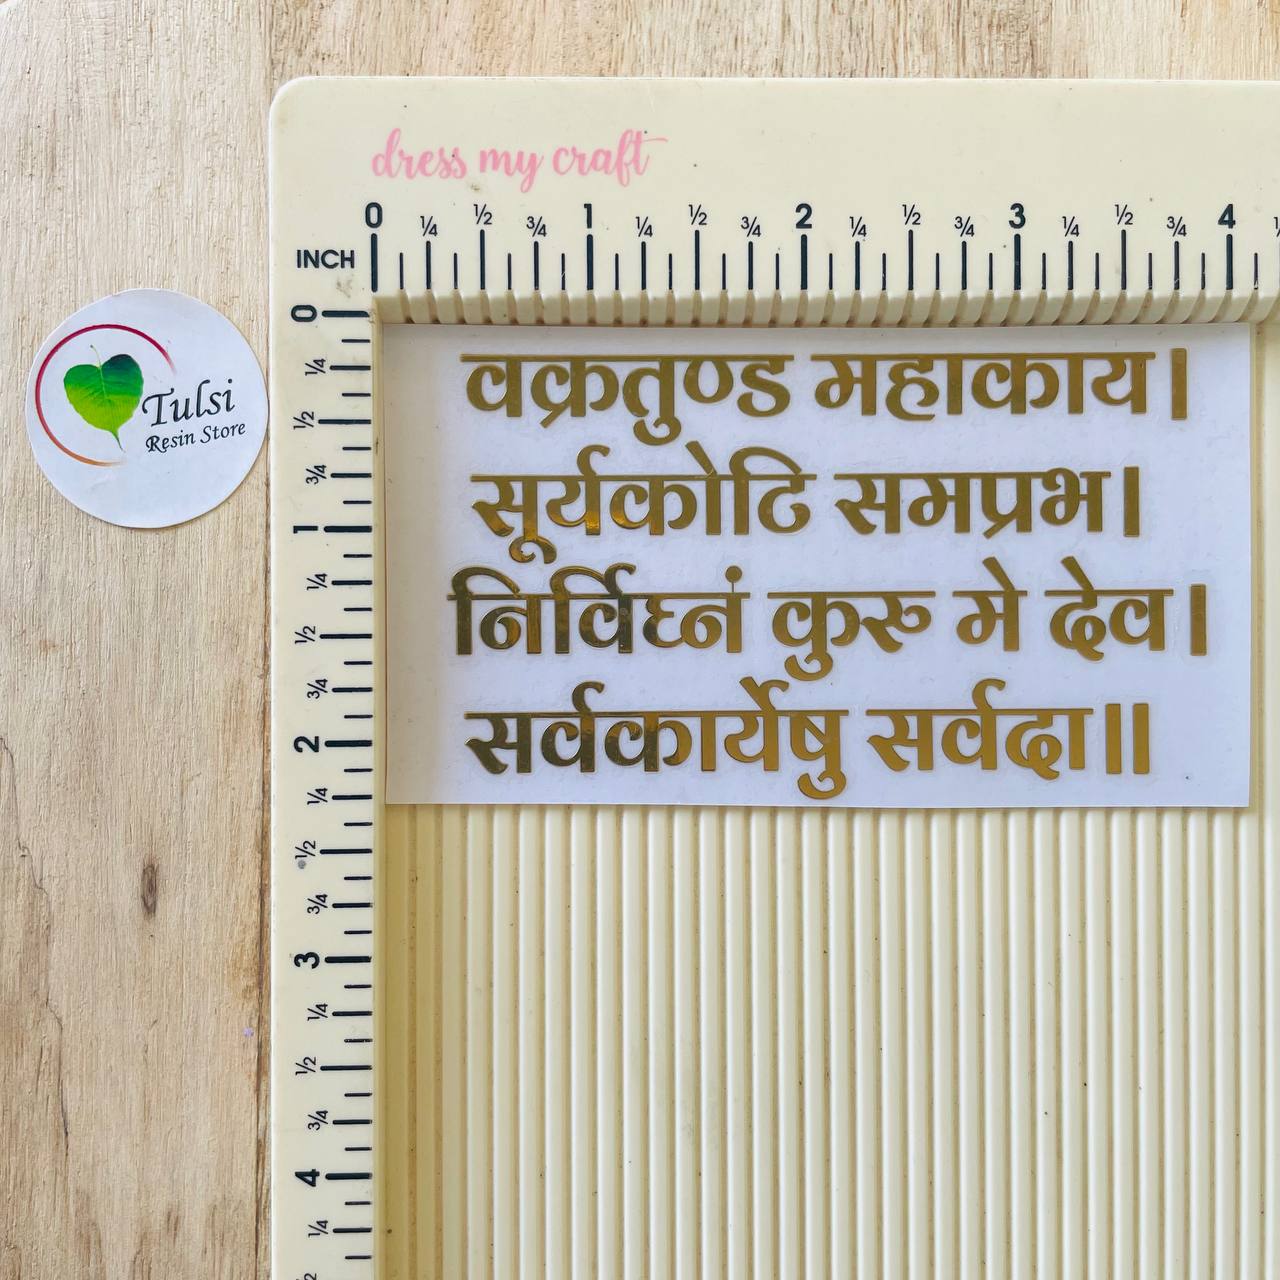 dress my craft
0 ¼ ½ ¾ 1 ¼ ½ ¾ 2 ¼ ½ ¾ 3 ¼ ½ ¾ 4
INCH
0
¼
½
¾
1
¼
½
¾
2
¼
½
¾
3
¼
½
¾
4
¼
Tulsi
Resin Store
वक्रतुण्ड महाकाय।
सूर्यकोटि समप्रभ।
निर्विघ्नं कुरु मे देव।
सर्वकार्येषु सर्वदा॥